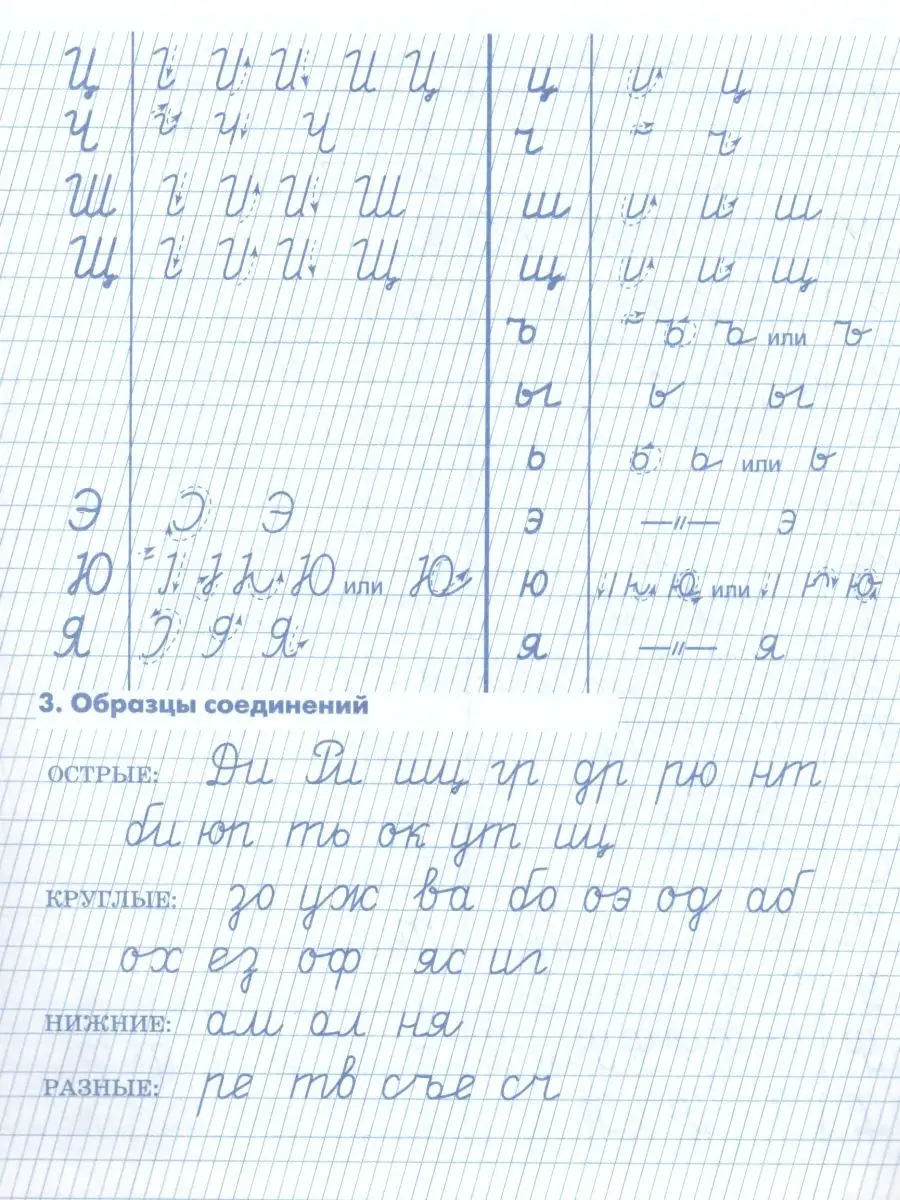 Ц И Ц ц и ц
Ч Ч ч ч
Ш И Ш ш и ш
Щ И Щ щ и щ
ъ ъ ъ или ъ
ы ь ы
ь ь ь или ь
Э Э э —"— э
Ю Ю или Ю ю ю или ю
Я Я я —"— я
3. Образцы соединений
ОСТРЫЕ: Ди Ри шц гр др рю нт
би юп ть ок ут иц
КРУГЛЫЕ: зо уж ва бо оэ од аб
ох ез оф яс иг
НИЖНИЕ: ам ол ня
РАЗНЫЕ: ре тв съе сч